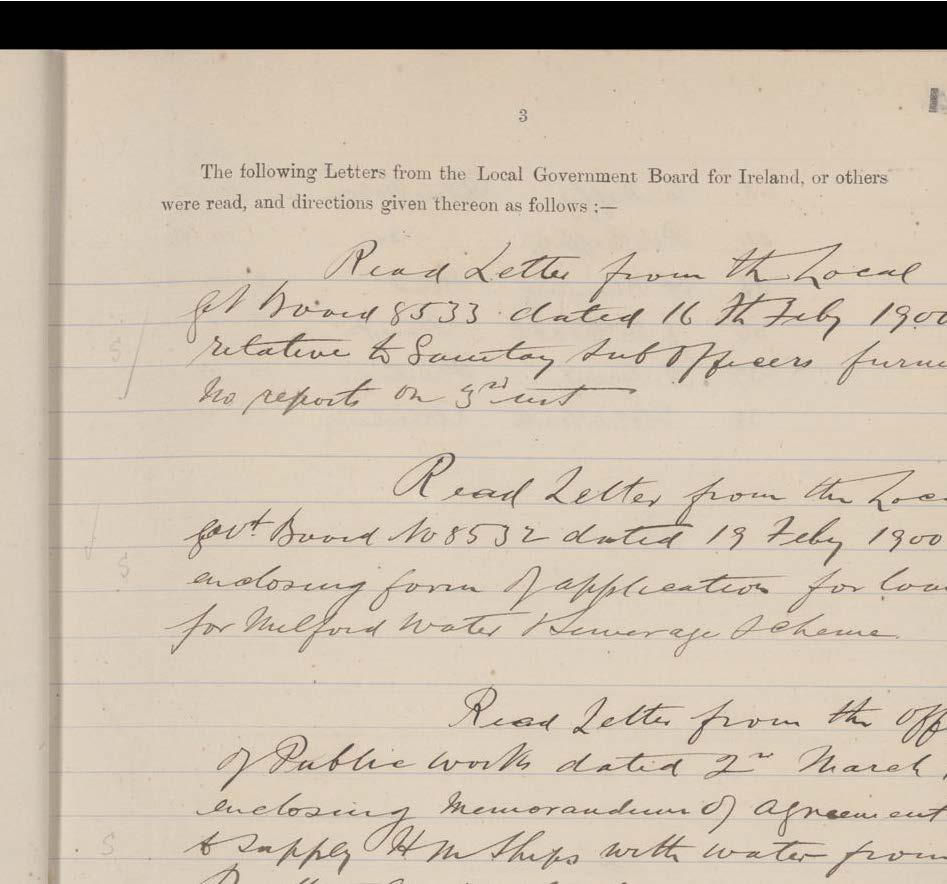 3
The following Letters from the Local Government Board for Ireland, or others
were read, and directions given thereon as follows :—
Read Letter from the Local
Board 8533 dated 16th Feby 1900
relative to Sanitary Sub Officers
No reports on 3rd inst
Read Letter from the
Govt Board No 8532 dated 19 Feby 1900
enclosing form of application for
for Milford Water & Sewerage Scheme
Read Letter from the
of Public works dated 2nd March
enclosing Memorandum of Agreement
to supply H M Ships with water from
S
S
S